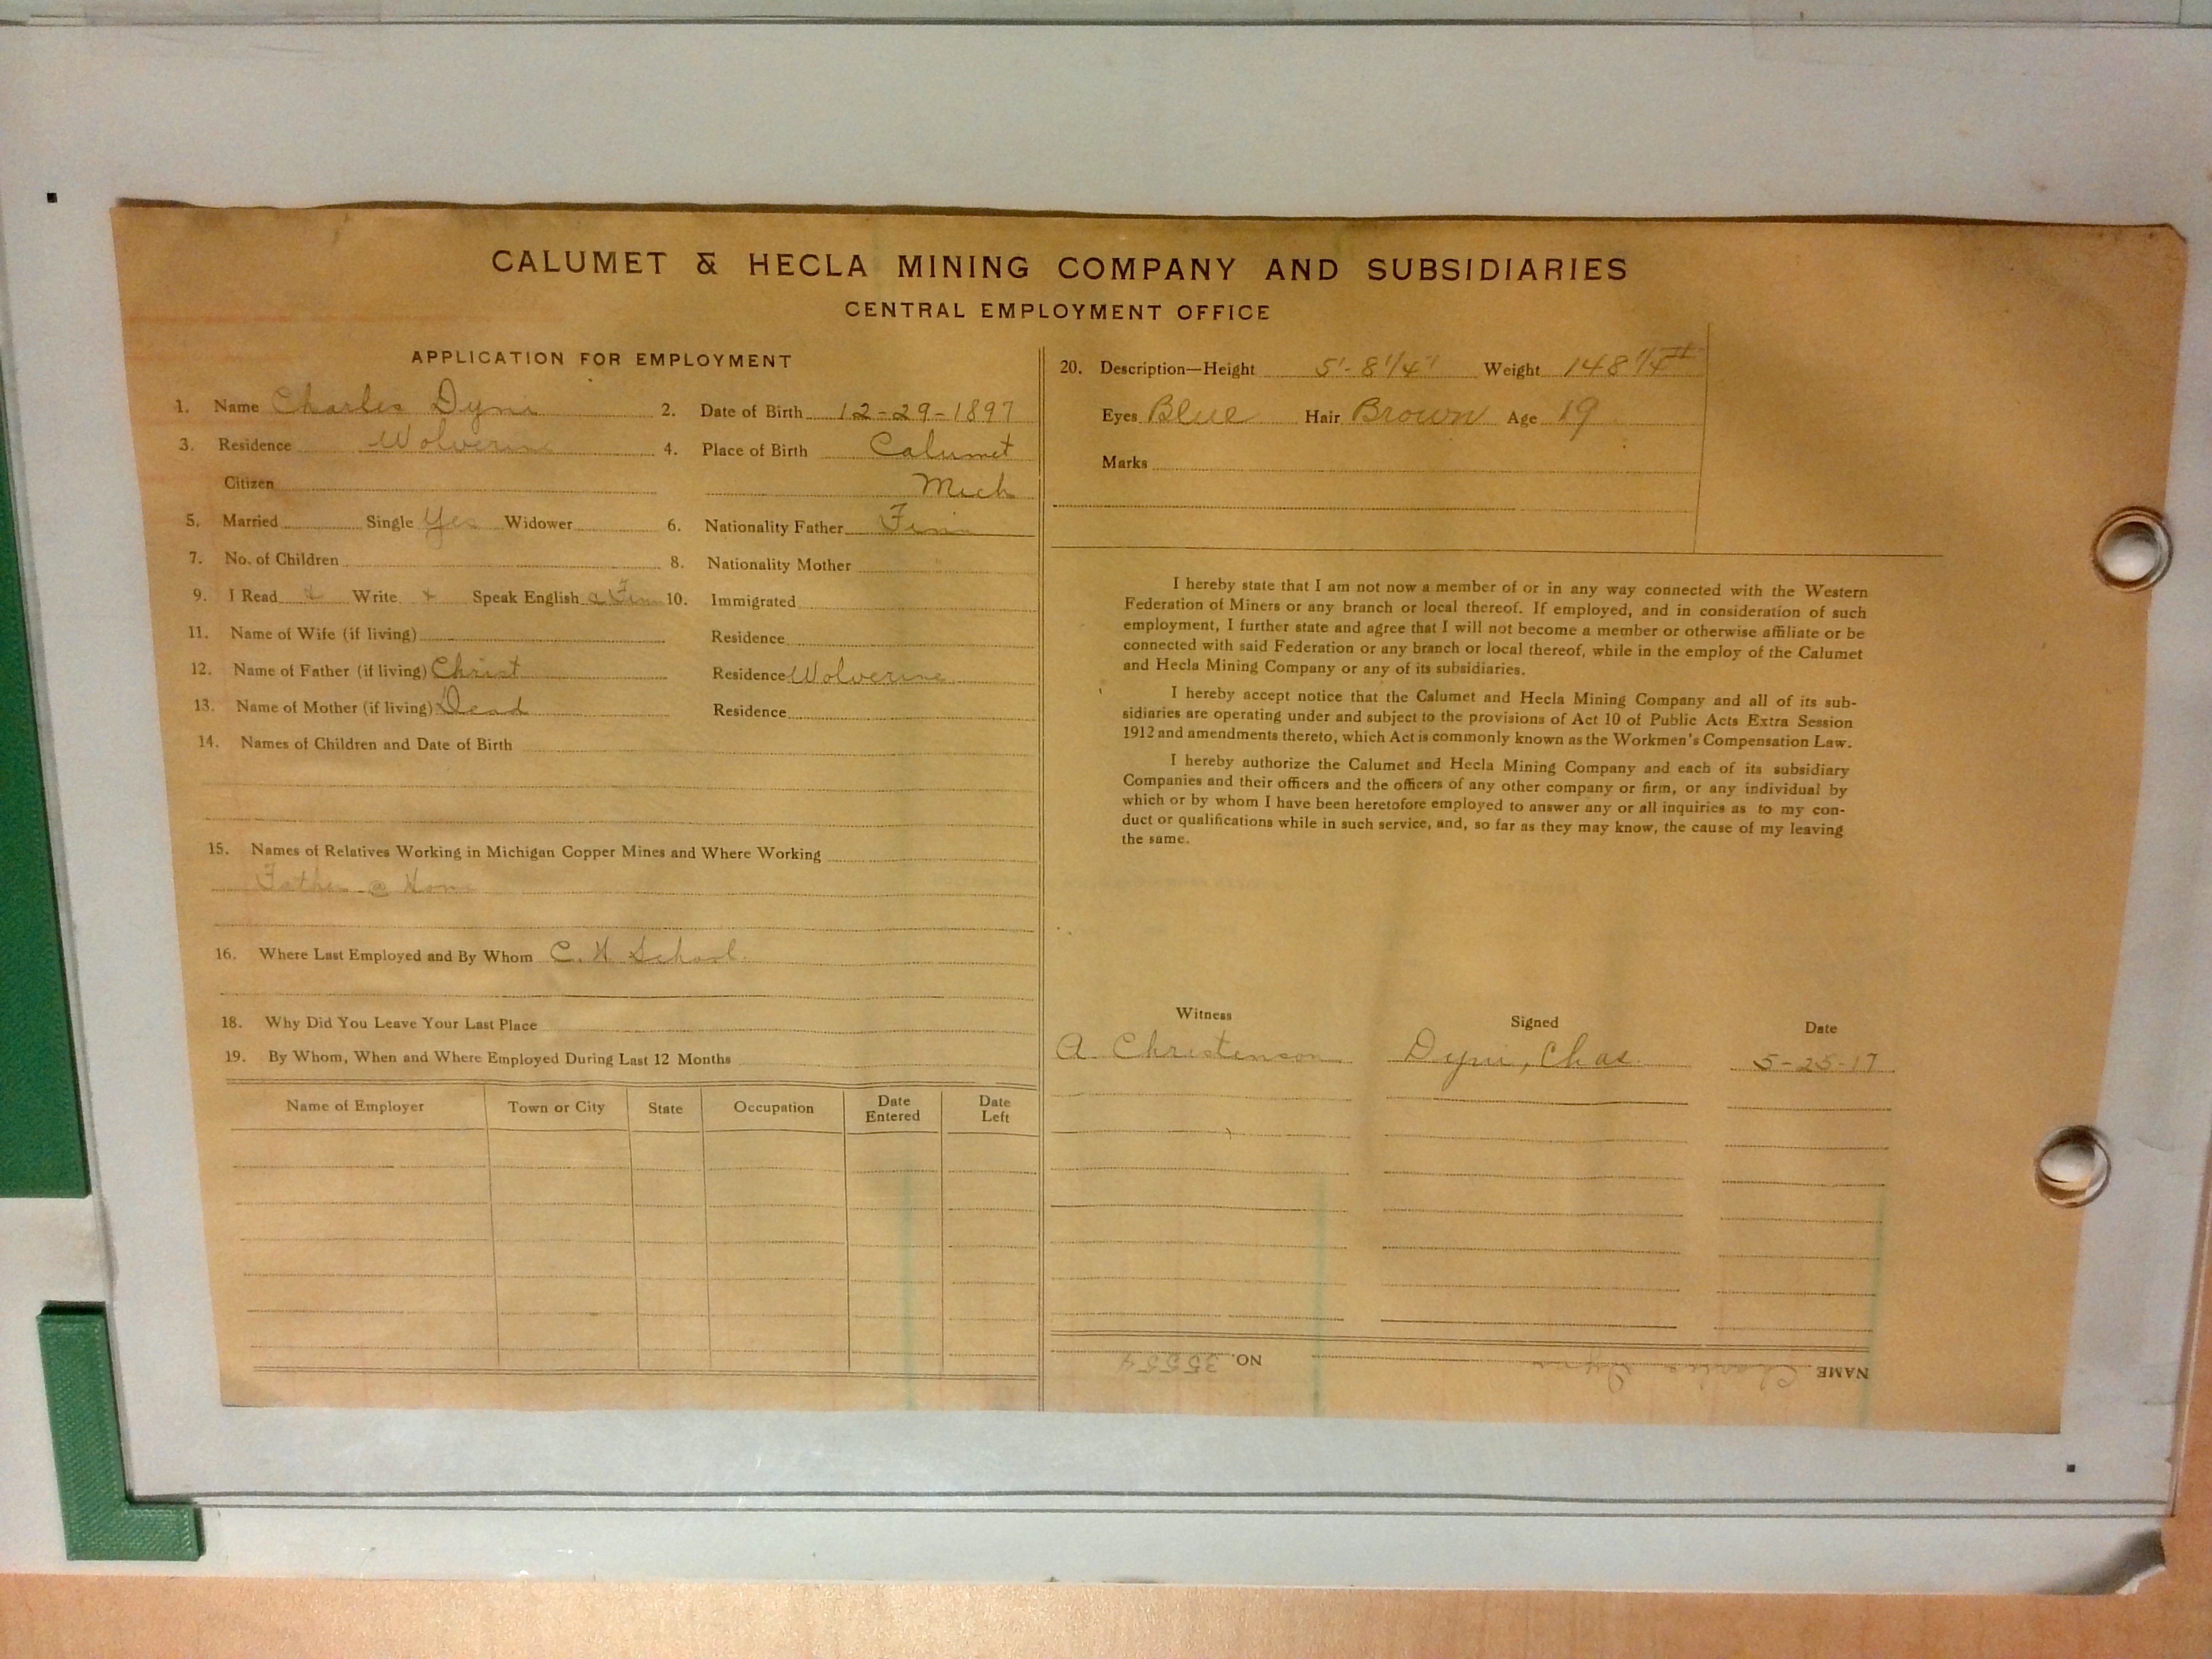 CALUMET & HECLA MINING COMPANY AND SUBSIDIARIES
CENTRAL EMPLOYMENT OFFICE
APPLICATION FOR EMPLOYMENT
1. Name Charles Dyni 2. Date of Birth 12-29-1897
3. Residence Wolverine 4. Place of Birth Calumet
Citizen Mich
5. Married Single Yes Widower 6. Nationality Father Finn
7. No. of Children 8. Nationality Mother
9. I Read Write Speak English & Finn 10. Immigrated
11. Name of Wife (if living) Residence
12. Name of Father (if living) Christ Residence Wolverine
13. Name of Mother (if living) Dead Residence
14. Names of Children and Date of Birth
15. Names of Relatives Working in Michigan Copper Mines and Where Working
Father @ Home
16. Where Last Employed and By Whom C. H School.
18. Why Did You Leave Your Last Place
19. By Whom, When and Where Employed During Last 12 Months
Name of Employer Town or City State Occupation Date Entered Date Left
20. Description—Height 5'-8 1/4" Weight 148 1/4 #
Eyes Blue Hair Brown Age 19
Marks
I hereby state that I am not now a member of or in any way connected with the Western
Federation of Miners or any branch or local thereof. If employed, and in consideration of such
employment, I further state and agree that I will not become a member or otherwise affiliate or be
connected with said Federation or any branch or local thereof, while in the employ of the Calumet
and Hecla Mining Company or any of its subsidiaries.
I hereby accept notice that the Calumet and Hecla Mining Company and all of its sub-
sidiaries are operating under and subject to the provisions of Act 10 of Public Acts Extra Session
1912 and amendments thereto, which Act is commonly known as the Workmen's Compensation Law.
I hereby authorize the Calumet and Hecla Mining Company and each of its subsidiary
Companies and their officers and the officers of any other company or firm, or any individual by
which or by whom I have been heretofore employed to answer any or all inquiries as to my con-
duct or qualifications while in such service, and, so far as they may know, the cause of my leaving
the same.
Witness Signed Date
A Christenson Dyni, Chas. 5-25-17
NAME Charles Dyni NO. 35554